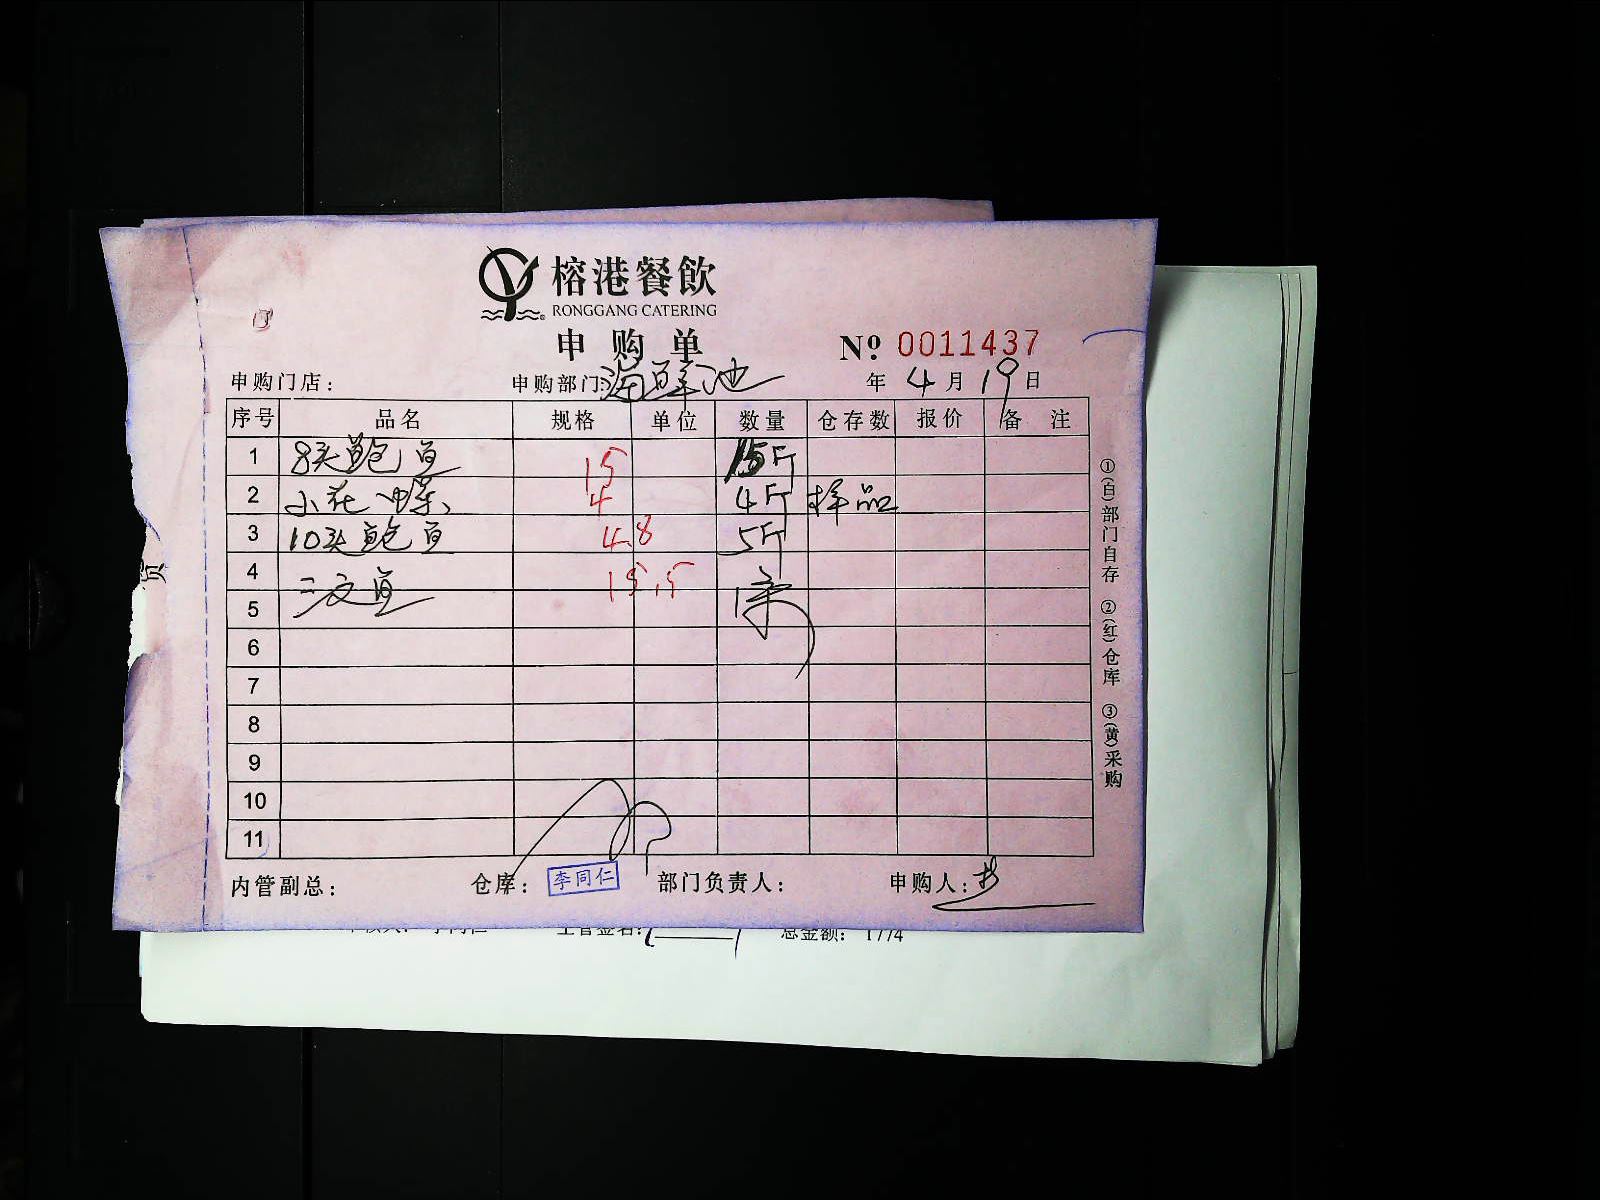 榕港餐飲
RONGGANG CATERING
申购单
№ 0011437
申购门店: 申购部门:海鲜池 年 4 月 19 日
序号 品名 规格 单位 数量 仓存数 报价 备 注
1 8头鲍鱼 15 15斤
2 小花螺 4 4斤 样品
3 10头鲍鱼 4.8 5斤
4 三文鱼 15.5 1条
5
6
7
8
9
10
11
内管副总: 仓库: 李同仁 部门负责人: 申购人:
①(白)部门自存 ②(红)仓库 ③(黄)采购
总金额: 1774